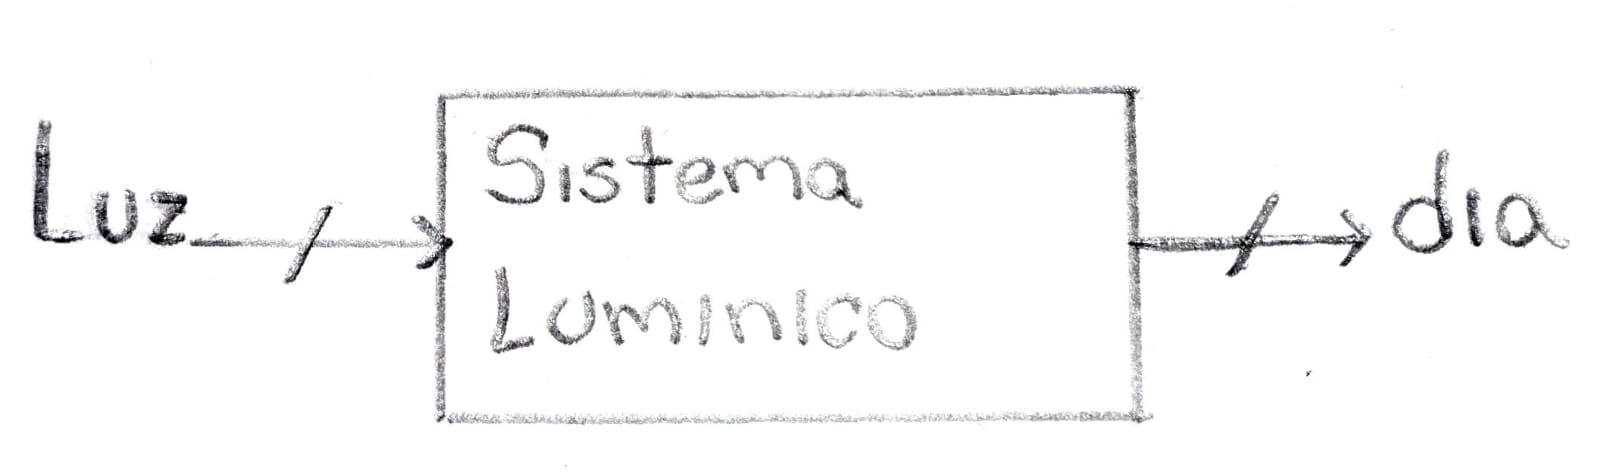 Luz
Sistema
Lumínico
dia